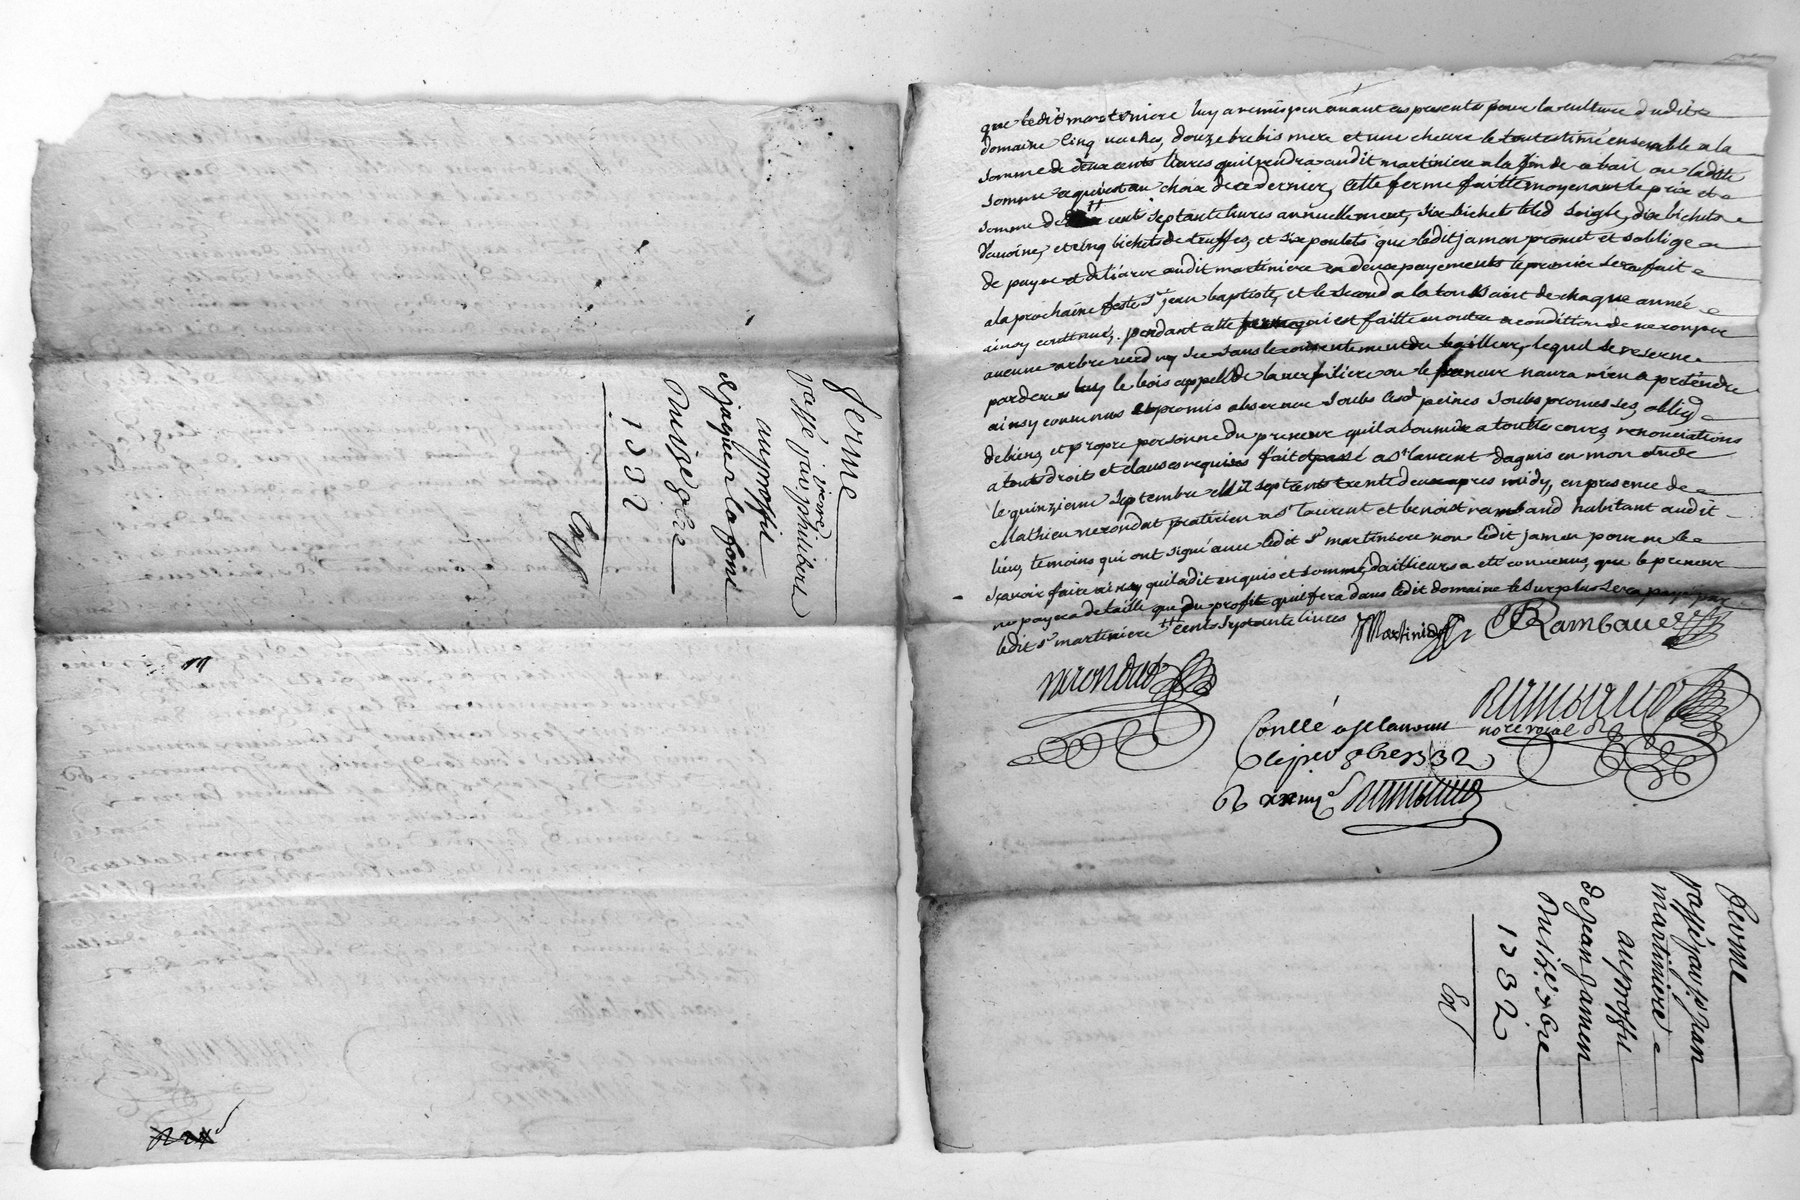 ferme
passé par philibert
vivre
au proffit
de jaques la font
Du 15e 7bre
1732
Ex
que ledit martiniere luy a remis peu avant ces presentes pour la culture dudit
domaine cinq vaches, douze brebis mere et une chevre le tout estimé ensemble a la
somme de deux cents livres quil rendra audit martiniere a la fin de ce bail ou ladite
somme au choix de ce dernier, cette ferme faitte moyenant le prix et
somme de cents septante livres annuellement, six bichets bled seigle, dix bichets
d'avoine, et cinq bichets de truffes, et six poulets que ledit jamen promet et s'oblige
de payer et delivrer audit martiniere en deux payements le premier sera fait
a la prochaine feste st jean baptiste, et le second a la toussaint de chaque année
ainsy continué, pendant cette ferme qui est faitte en outre a condition de ne rompre
aucune arbre verd ny sec sans le consentement du bailleur, lequel se reserve
pardevers luy le bois appellé de la verpiliere ou le preneur naura rien a prétendre
ainsy convenus et promis observer soubs lesd peines soubs promesses, oblig
de biens, et propre personne du preneur quil a soumise a touttes cours, renonciations
a touts droits et clauses requises fait et passé a st laurent dagnis en mon etude
le quinzieme septembre mil sept cents trente deux apres midy, en presence de
Mathieu nerondat praticien a st laurent et benoist rambaud habitant audit
lieu, temoins qui ont signé avec ledit sr martiniere non ledit jamen pour ne le
sçavoir faire ainsy quil a dit enquis et sommé, dailleurs a eté convenus, que le preneur
ne payera de taille que du profit quil fera dans ledit domaine le surplus sera payé par
ledit sr martiniere cents septante livres
Martiniere B Rambaud
nerondat
notre royal
Conllé a st laurent
le 1732
ferme
passé par sr jean
martiniere
au proffit
de jean jamen
Du 15e 7bre
1732
Ex